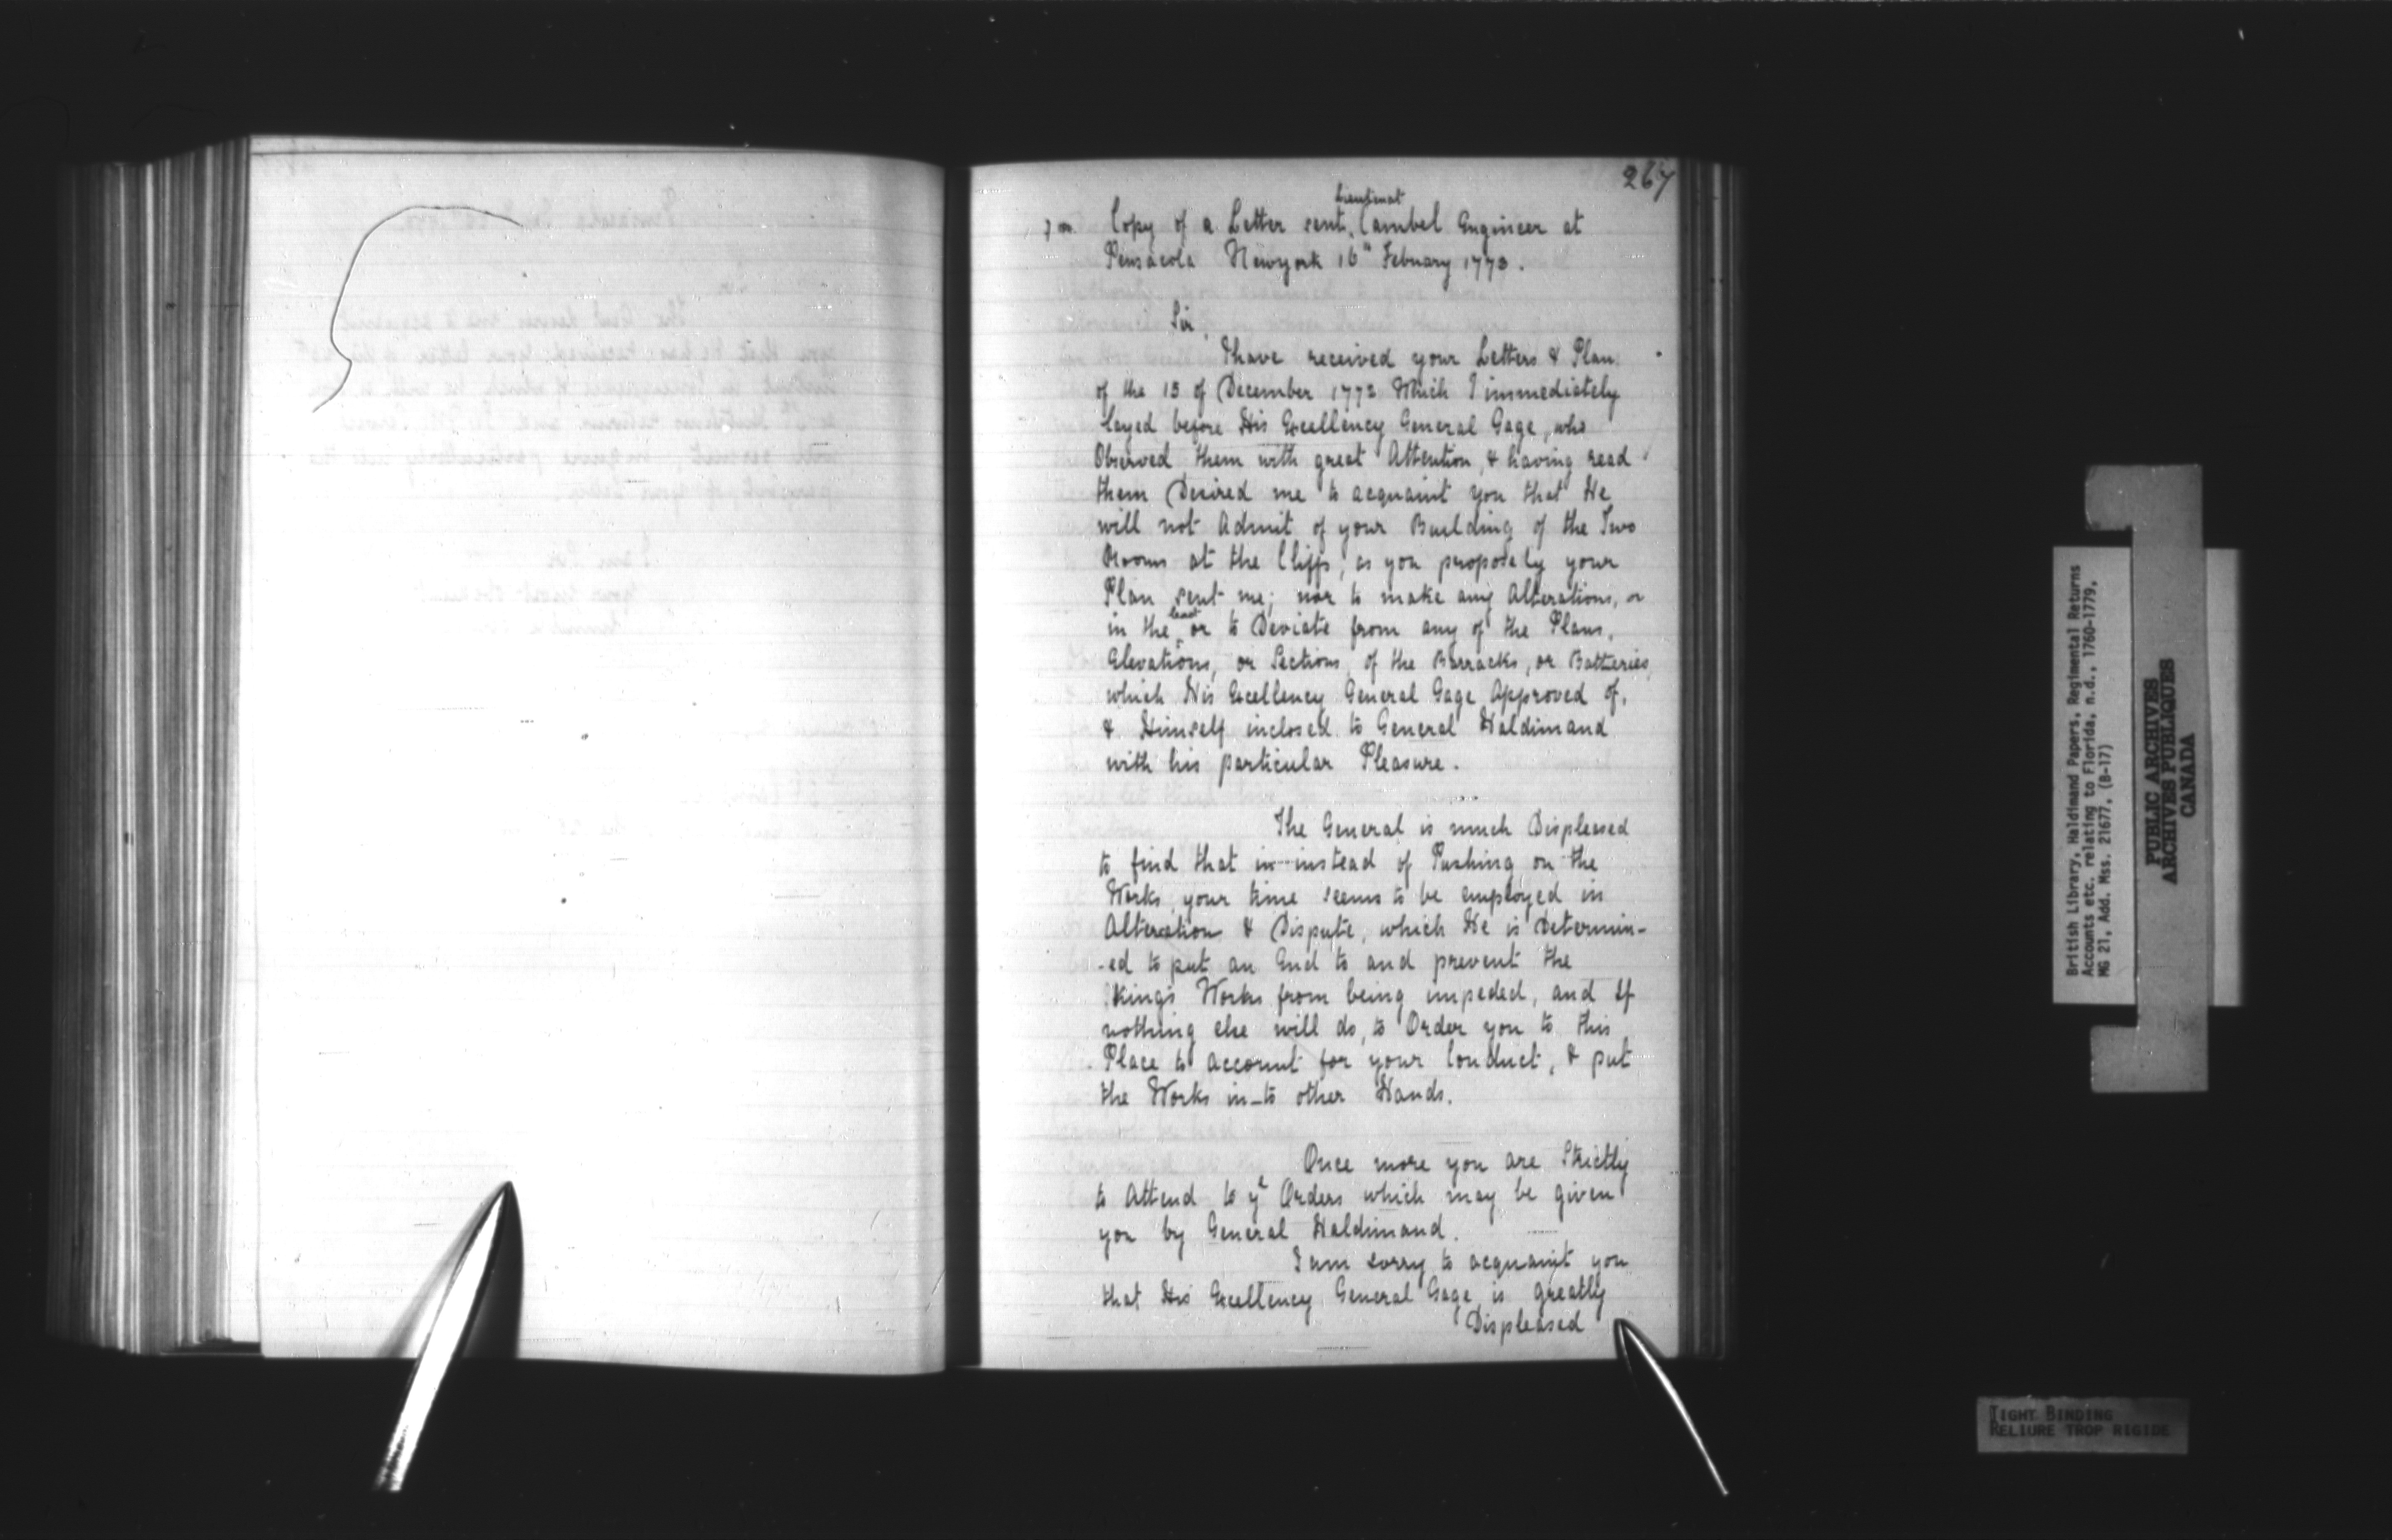 267
Lieutenat
Copy of a Letter sent Cambel Engineer at
Pensacola Newyork 16th Febuary 1773.
Sir,
I have received your Letters & Plan
of the 15 of December 1772 Which I immediately
layed before His Excellency General Gage, who
Observed them with great Attention, & having read
them Desired me to acquaint you that He
will not Admit of your Building of the Two
Rooms at the Cliffs, as you propose by your
Plan sent me; nor to make any Alterations, or
in the least or to Deviate from any of the Plans,
Elevations, or Sections, of the Barracks, or Batteries,
which His Excellency General Gage Approved of,
& Himself inclosed to General Haldimand
with his particular Pleasure.
The General is much Displeased
to find that in-instead of Pushing on the
Works, your time seems to be employed in
Alteration & Dispute, which He is Determin-
-ed to put an End to and prevent the
King's Works from being impeded, and If
nothing else will do, to Order you to this
Place to account for your Conduct, & put
the Works in-to other Hands.
Once more you are Strictly
to Attend to ye Orders which may be given
you by General Haldimand.
I am sorry to acquaint you
that His Excellency General Gage is greatly
Displeased
British Library, Haldimand Papers, Regimental Returns
Accounts etc. relating to Florida, n.d., 1760-1779,
MG 21, Add. Mss. 21677, (B-17)
PUBLIC ARCHIVES
ARCHIVES PUBLIQUES
CANADA
TIGHT BINDING
RELIURE TROP RIGIDE